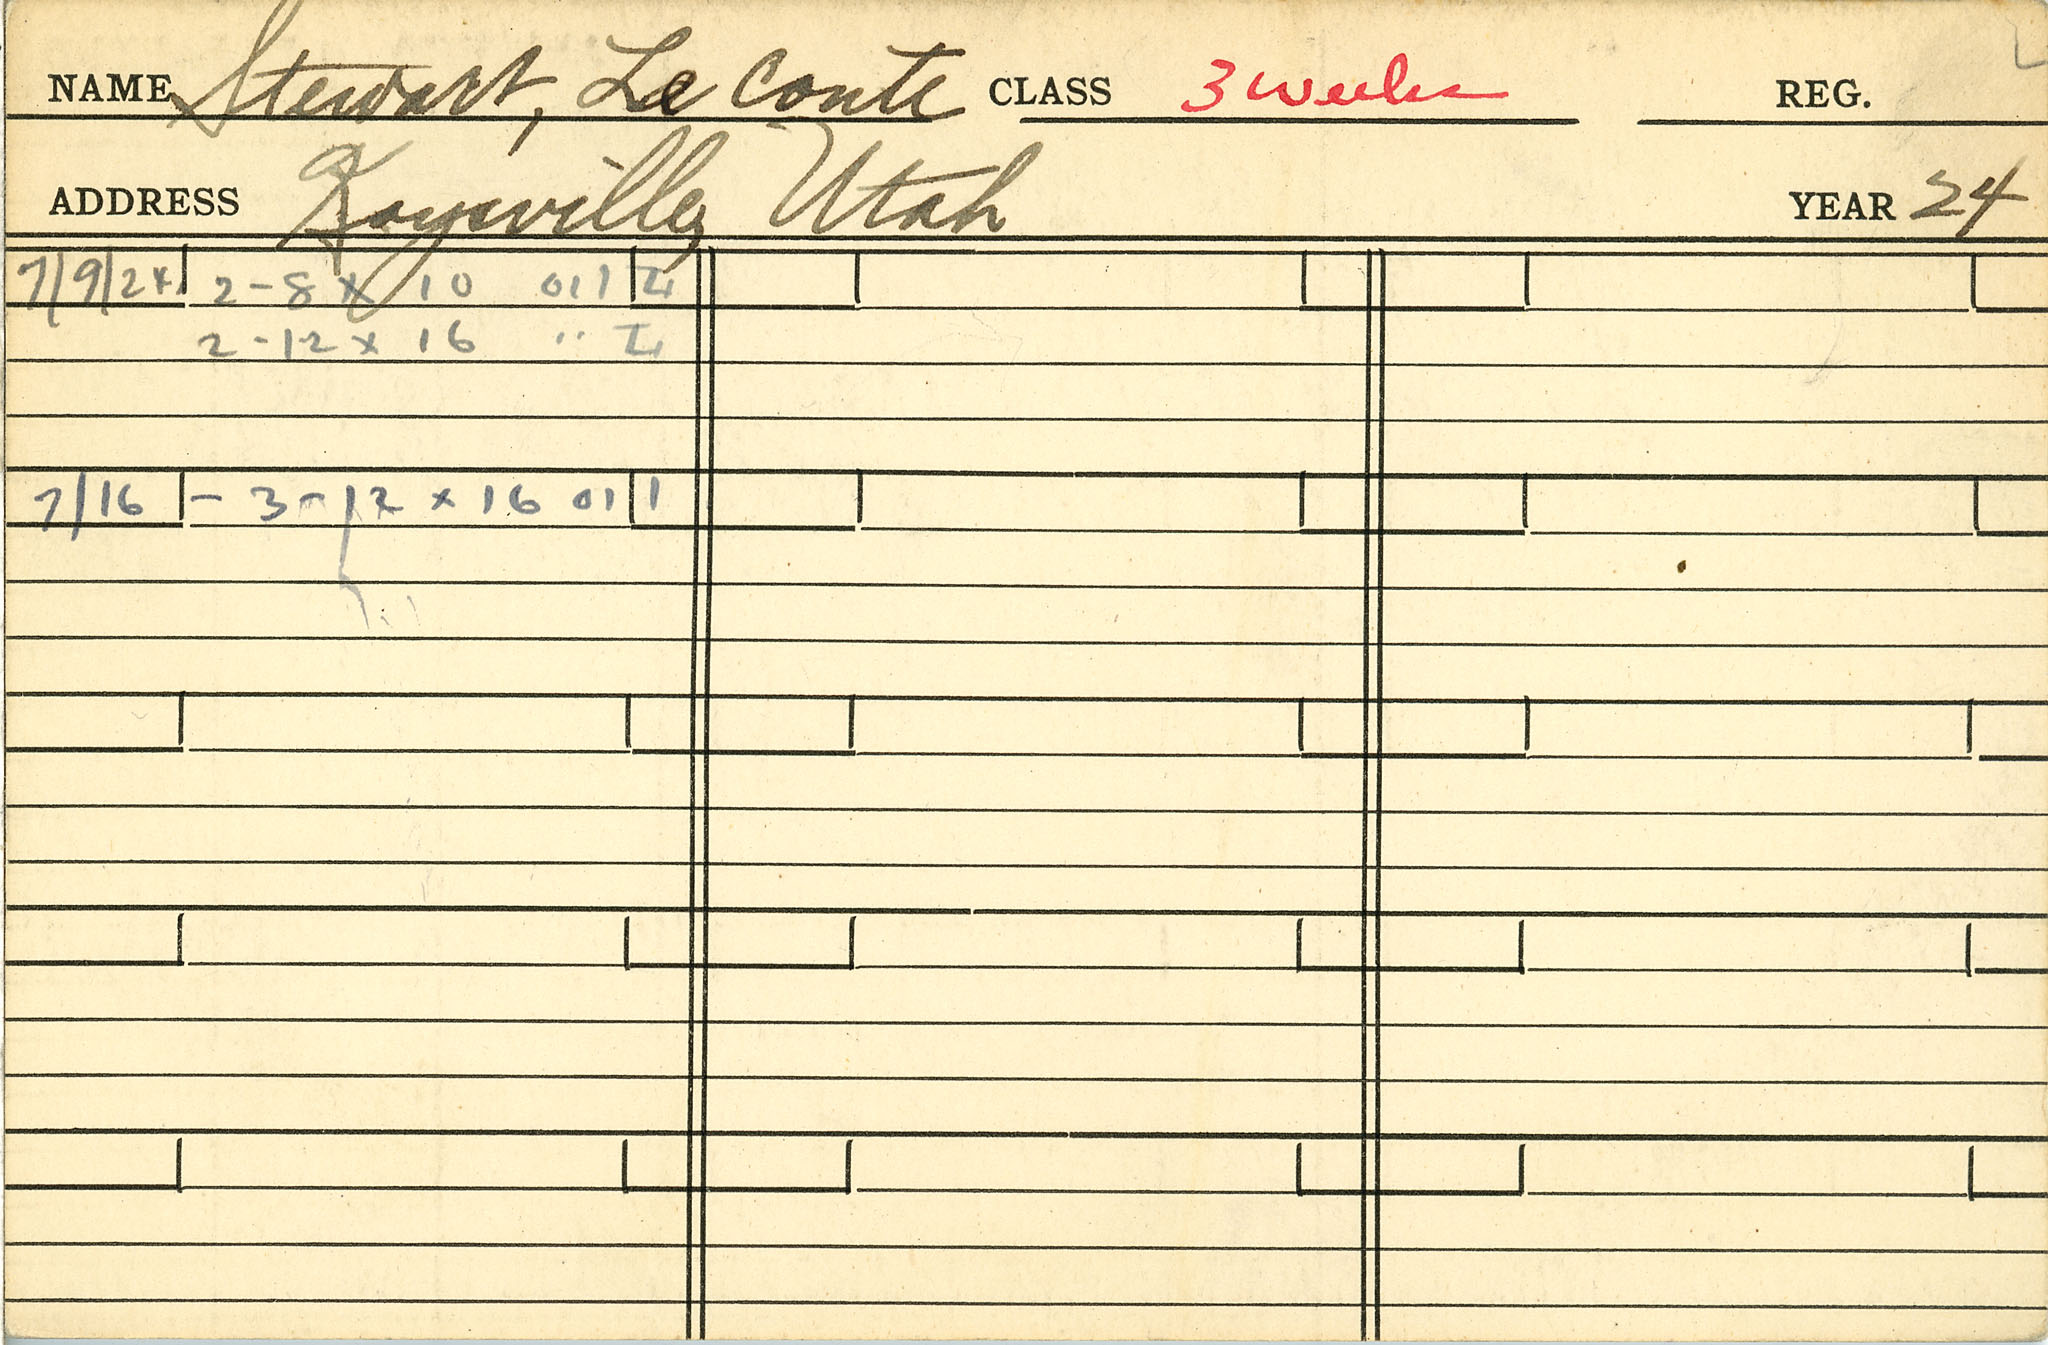 NAME Stewart, Le Conte CLASS 3 weeks REG.
ADDRESS Kaysville, Utah YEAR 24
7/9/24 2-8 x 10 oil L
2-12 x 16 " L
7/16 - 3-12 x 16 oil